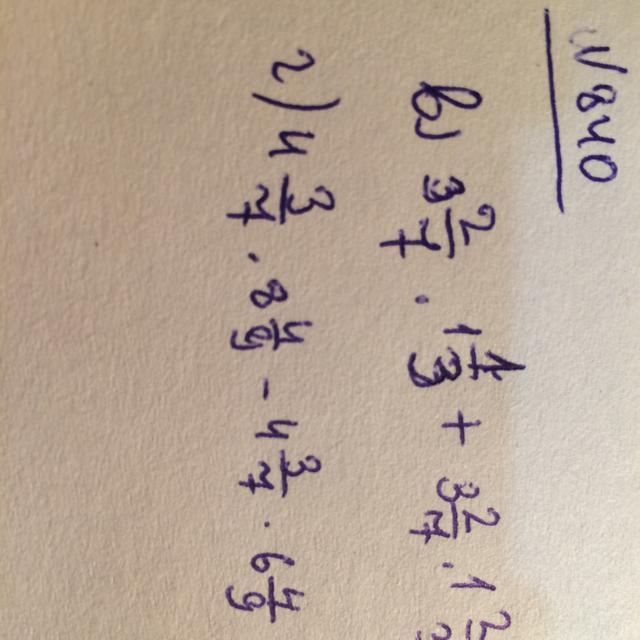 №840
в) 3 2/7 · 1 1/3 + 3 2/7 · 1 2/3
г) 4 3/7 · 8 4/9 - 4 3/7 · 6 4/9